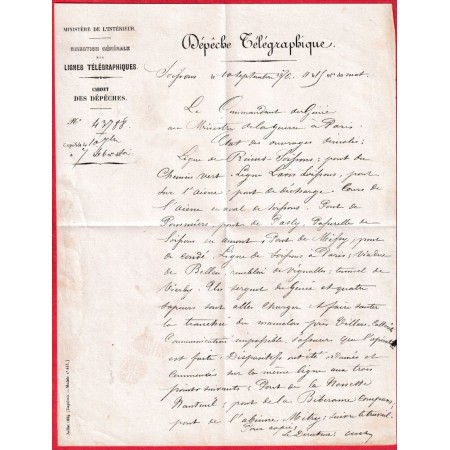 MINISTÈRE DE L'INTÉRIEUR.
DIRECTION GÉNÉRALE
DES
LIGNES TÉLÉGRAPHIQUES.
CABINET
DES DÉPÊCHES.
N° 43788
Expédiée le 10 7bre
à 7
Dépêche Télégraphique.
Soissons le 10 septembre
Le Commandant du Génie
au Ministre de la guerre à Paris.
Etat des ouvrages
Ligne de Reims-Soissons; pont du
Chemin vert. Ligne Laon Soissons, pont
sur l'aisne; pont de décharge. Cours de
l'aisne en aval de Soissons. Pont de
Pommiers, pont de Pasly, Passerelle de
Soissons en amont. Pont de Missy, pont
de condé. Ligne de Soissons à Paris; viaduc
de Belleu, remblai de Vignolles; tunnel de
Vierzy. Un sergent du Génie et quatre
sapeurs sont allés charger et faire sauter
la tranchée du mamelon près Villers Cotterêts
Communication impossible,
est faite. Dispositifs ont été ordonnés et
commencés sur la même ligne aux trois
points suivants: Pont de la
Nanteuil; pont de la Biberonne
pont de Mitry;
Pour copie;
Le Directeur